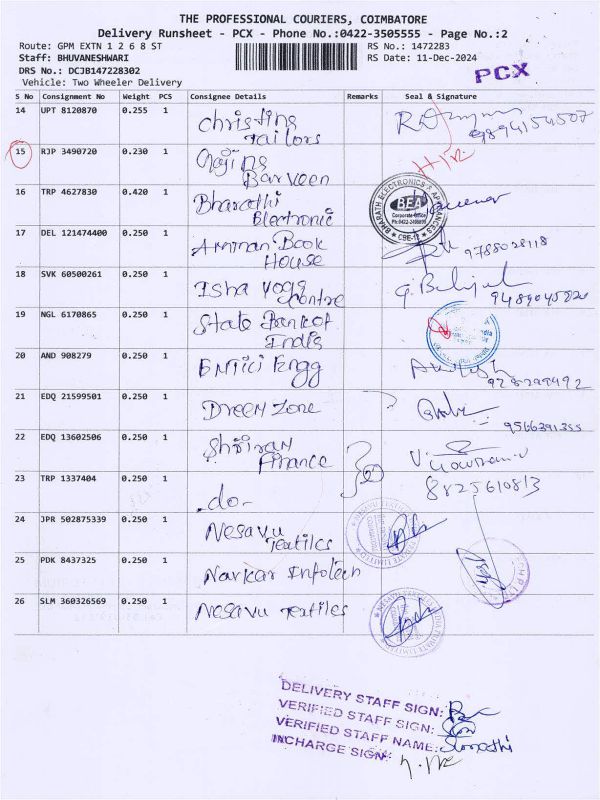 THE PROFESSIONAL COURIERS, COIMBATORE
Delivery Runsheet - PCX - Phone No.:0422-3505555 - Page No.:2
Route: GPM EXTN 1 2 6 8 ST
RS No.: 1472283
Staff: BHUVANESHWARI
RS Date: 11-Dec-2024
DRS No.: DCJB147228302
PCX
Vehicle: Two Wheeler Delivery
S No Consignment No Weight PCS Consignee Details Remarks Seal & Signature
14 UPT 8120870 0.255 1 Christing Tailors
15 RJP 3490720 0.230 1 Barveen
16 TRP 4627830 0.420 1 Bharathi Electronic
BHARATH ELECTRONICS & APPLIANCES
BEA
Corporate Office
CBE-12
17 DEL 121474400 0.250 1 Amman Book House 9788028118
18 SVK 60500261 0.250 1 Isha Yoga Centre
19 NGL 6170865 0.250 1 State Bank of India
20 AND 908279 0.250 1 Engg
21 EDQ 21599501 0.250 1 Dreem Zone 9566391355
22 EDQ 13602506 0.250 1 Shriram Finance
23 TRP 1337404 0.250 1 -do- 8825610813
24 JPR 502875339 0.250 1 Nesavu Textiles
25 PDK 8437325 0.250 1 Narkar Infotech
26 SLM 360326569 0.250 1 Nesavu Textiles
DELIVERY STAFF SIGN:
VERIFIED STAFF SIGN:
VERIFIED STAFF NAME:
INCHARGE SIGN: